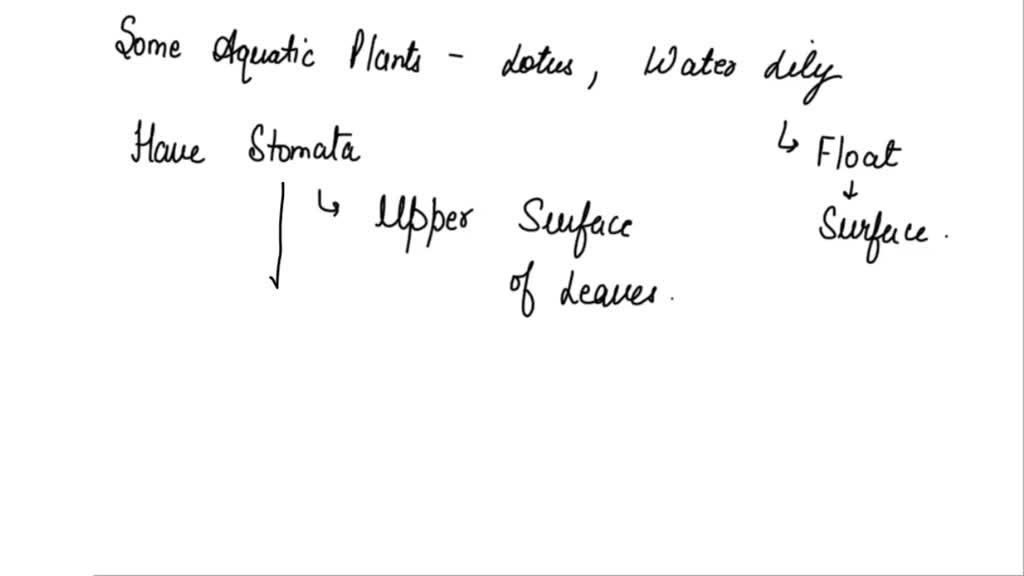 Some Aquatic Plants - Lotus, Water Lily
↳ Float
Have Stomata
↓
↳ Upper Surface
Surface.
of Leaves.